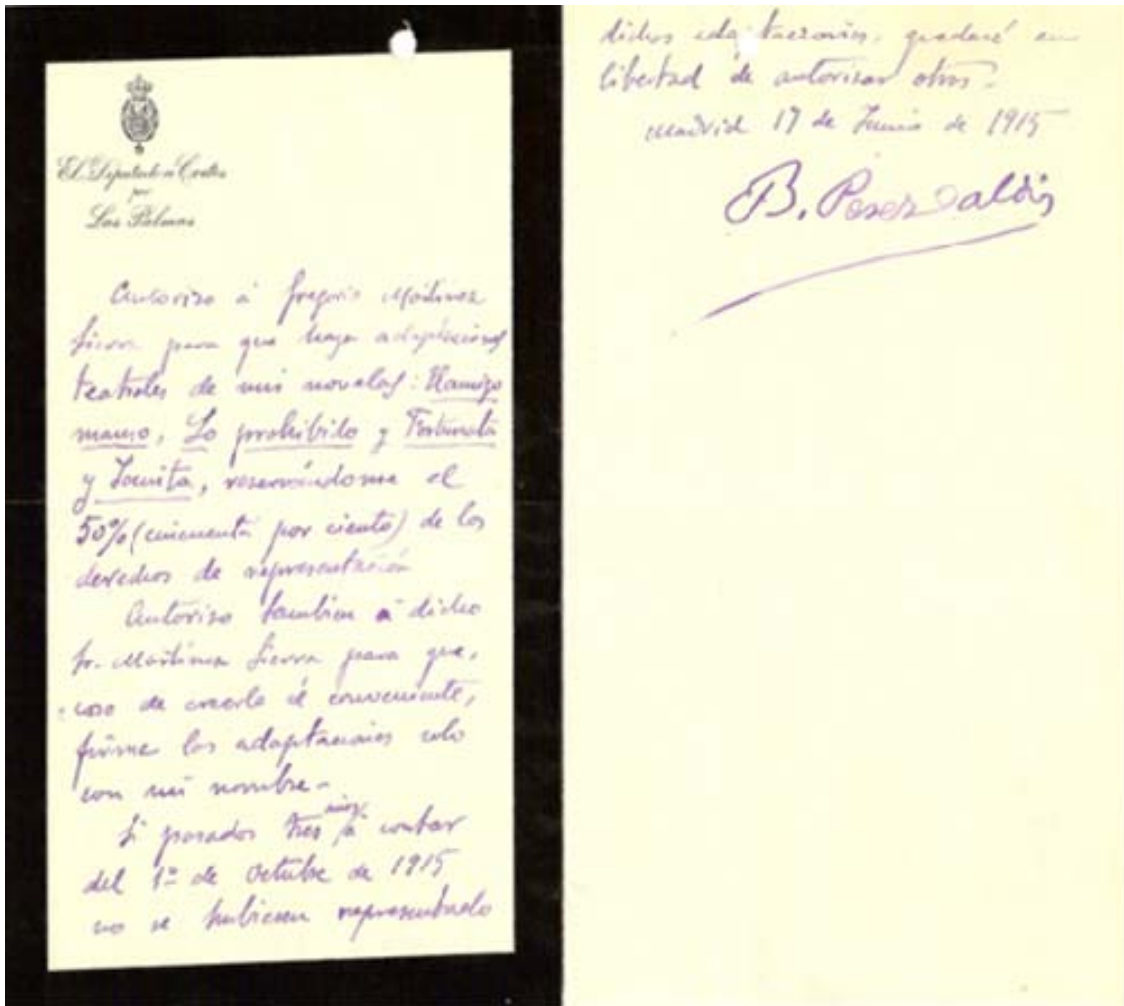 El Diputado a Cortes
por
Las Palmas
Autorizo á Gregorio Martinez
Sierra para que haga adaptaciones
teatrales de mis novelas: El amigo
manso, Lo prohibido y Fortunata
y Jacinta, reservándome el
50% (cincuenta por ciento) de los
derechos de representación
Autorizo tambien á dicho
Sr. Martinez Sierra para que,
caso de creerlo él conveniente,
firme las adaptaciones solo
con mi nombre-
Si pasados tres años á contar
del 1º de Octubre de 1915
no se hubiesen representado
dichas adaptaciones, quedaré en
libertad de autorizar otras-
Madrid 17 de Junio de 1915
B. Perez Galdós